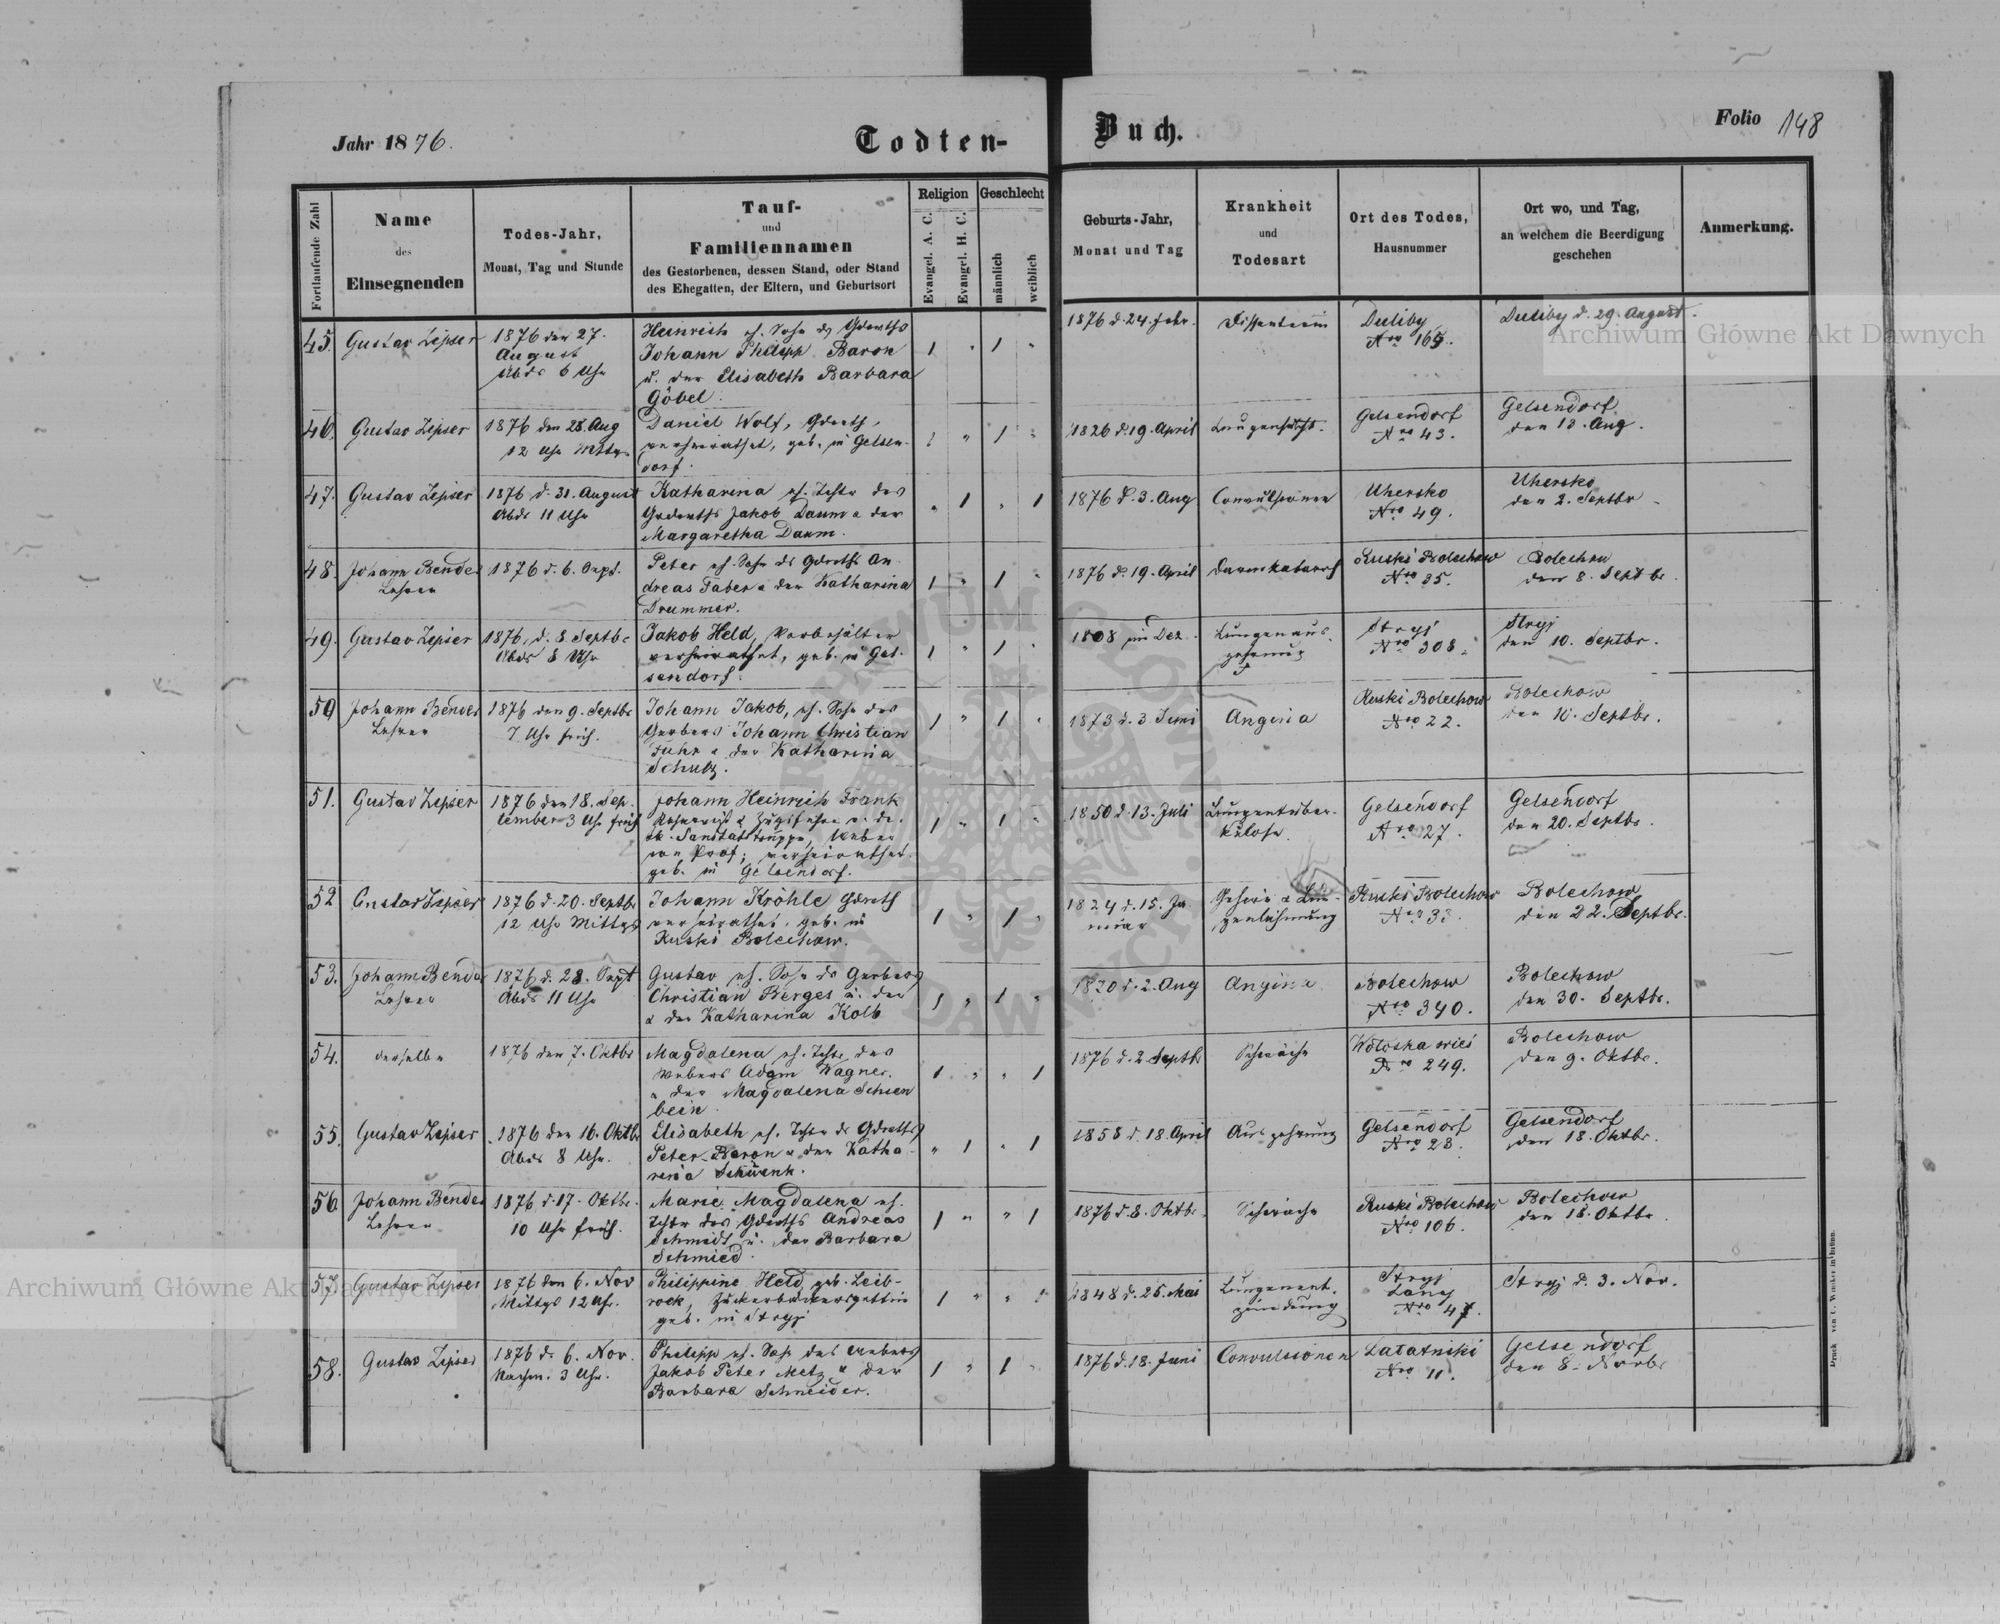 Jahr 1876.
Todten-
Buch.
Folio 148
Fortlaufende Zahl
Name
des
Einsegnenden
Todes-Jahr,
Monat, Tag und Stunde
Tauf-
und
Familiennamen
des Gestorbenen, dessen Stand, oder Stand
des Ehegatten, der Eltern, und Geburtsort
Religion
Evangel. A. C.
Evangel. H. C.
Geschlecht
männlich
weiblich
Geburts-Jahr,
Monat und Tag
Krankheit
und
Todesart
Ort des Todes,
Hausnummer
Ort wo, und Tag,
an welchem die Beerdigung
geschehen
Anmerkung.
45. Gustav Zipser
1876 den 27.
August
Abds 6 Uhr
Heinrich eh. Sohn des
Johann Philipp Baron
u. der Elisabeth Barbara
Göbel.
1876 d. 24. Febr.
Duliby
Nro 165.
Duliby d. 29. August.
46. Gustav Zipser
1876 den 28. Aug
12 Uhr Mittgs
Daniel Wolf,
verheirathet, geb. in Gelsen-
dorf.
1826 d. 19. April
Gelsendorf
Nro 43.
Gelsendorf
den Aug.
47. Gustav Zipser
1876 d. 31. August
Abds 11 Uhr
Katharina eh. Tchtr des
Jakob Daum u. der
Margaretha Daum.
1876 d. 3. Aug
Convulsionen
Uhersko
Nro 49.
Uhersko
den 2. Septbr
48. Johann Bender
Lehrer
1876 d. 6. Sept.
Peter eh. Sohn des An-
dreas Faber u. der Katharina
Drummer.
1876 d. 19. April
Darmkatarrh
Ruski Bolechow
Nro 85.
Bolechow
den 8. Septbr.
49. Gustav Zipser
1876, d. 8 Septbr
Abds 8 Uhr
Jakob Held,
verheirathet, geb. in Gel-
sendorf.
1808 im Dez.
Lungenaus-
zehrung
Stryj
Nro 308.
Stryj
den 10. Septbr.
50 Johann Bender
Lehrer
1876 den 9. Septbr
7 Uhr früh.
Johann Jakob, eh. Sohn des
Gerbers Johann Christian
Fuhr u. der Katharina
Schulz.
1873 d. 3 Juni
Angina
Ruski Bolechow
Nro 22.
Bolechow
den Septbr.
51. Gustav Zipser
1876 den 18. Sep-
tember 3 Uhr früh
Johann Heinrich Frank
Sanitätstruppe, Weber
von Prof; verheirathet
geb. in Gelsendorf.
1850 d. 13. Juli
Lungentuber-
kulose
Gelsendorf
Nro 27.
Gelsendorf
den 20. Septbr.
52 Gustav Zipser
1876 d. 20. Septbr
12 Uhr Mittgs
Johann Kröhle
verheirathet, geb. in
Ruski Bolechow.
1824 d. 15. Ja-
nuar
Gehirn u. Lun-
genlähmung
Ruski Bolechow
Nro 33.
Bolechow
den 22. Septbr.
53. Johann Bender
Lehrer
1876 d. 28. Sept
Abds 11 Uhr
Gustav eh. Sohn des Gerbers
Christian Berges u. der
u. der Katharina Kolb
d. 2. Aug
Angina
Bolechow
Nro 340.
Bolechow
den 30. Septbr.
54. derselbe
1876 den 7. Oktbr
Magdalena eh. Tchtr. des
Webers Adam Wagner.
u. der Magdalena Schien
bein
1876 d. 2. Septb.
Schwäche
Woloska wies
Nro 249.
Bolechow
den 9. Oktbr.
55. Gustav Zipser
1876 den 16. Oktbr
Abds 8 Uhr.
Elisabeth eh. Tchtr des
Peter Baron u. der Katha-
rina Schwenk.
1858 d. 18. April
Auszehrung
Gelsendorf
Nro 28.
Gelsendorf
den 18. Oktbr.
56. Johann Bender
Lehrer
1876 d. 17. Oktbr.
10 Uhr früh.
Marie Magdalena eh.
Tchtr des Andreas
Schmidt u. der Barbara
Schmied.
1876 d. 8. Oktbr.
Schwäche
Ruski Bolechow
Nro 106.
Bolechow
den 18. Oktbr.
57. Gustav Zipser
1876 den 6. Nov
Mittgs 12 Uhr.
Philippine Held, geb. Leib-
rock, Zuckerbäckersgattin
geb. in Stryj
1848 d. 25. Mai
Lungenent-
zündung
Stryj
Lany
Nro 47.
Stryj d. 3. Nov.
58. Gustav Zipser
1876 d. 6. Nov.
Nachm. 3 Uhr.
Philipp eh. Sohn des Webers
Jakob Peter Metz u. der
Barbara Schneider.
1876 d. 18. Juni
Convulsionen
Tatarniki
Nro 11.
Gelsendorf
den 8. Novbr
Archiwum Główne Akt Dawnych
Archiwum Główne Akt Dawnych
ARCHIWUM GŁÓWNE AKT DAWNYCH